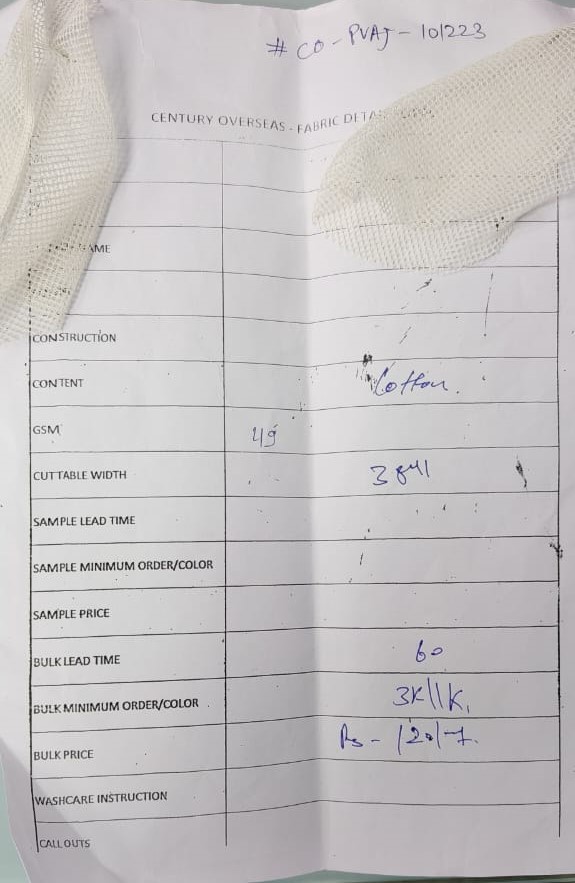 # CO - PVAJ - 101223
CENTURY OVERSEAS - FABRIC
NAME
CONSTRUCTION
CONTENT Cotton.
GSM 49
CUTTABLE WIDTH 38"
SAMPLE LEAD TIME
SAMPLE MINIMUM ORDER/COLOR
SAMPLE PRICE
BULK LEAD TIME 60
BULK MINIMUM ORDER/COLOR 3K||K
BULK PRICE Rs - 120/-
WASHCARE INSTRUCTION
CALL OUTS